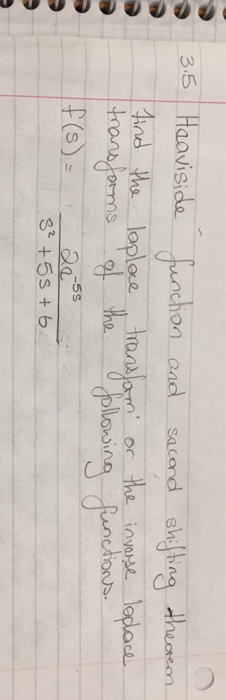 3.5 Heaviside function and second shifting theorem
find the laplace transform or the inverse laplace
transforms of the following functions.
f(s) = 2e^-5s
s² + 5s + 6